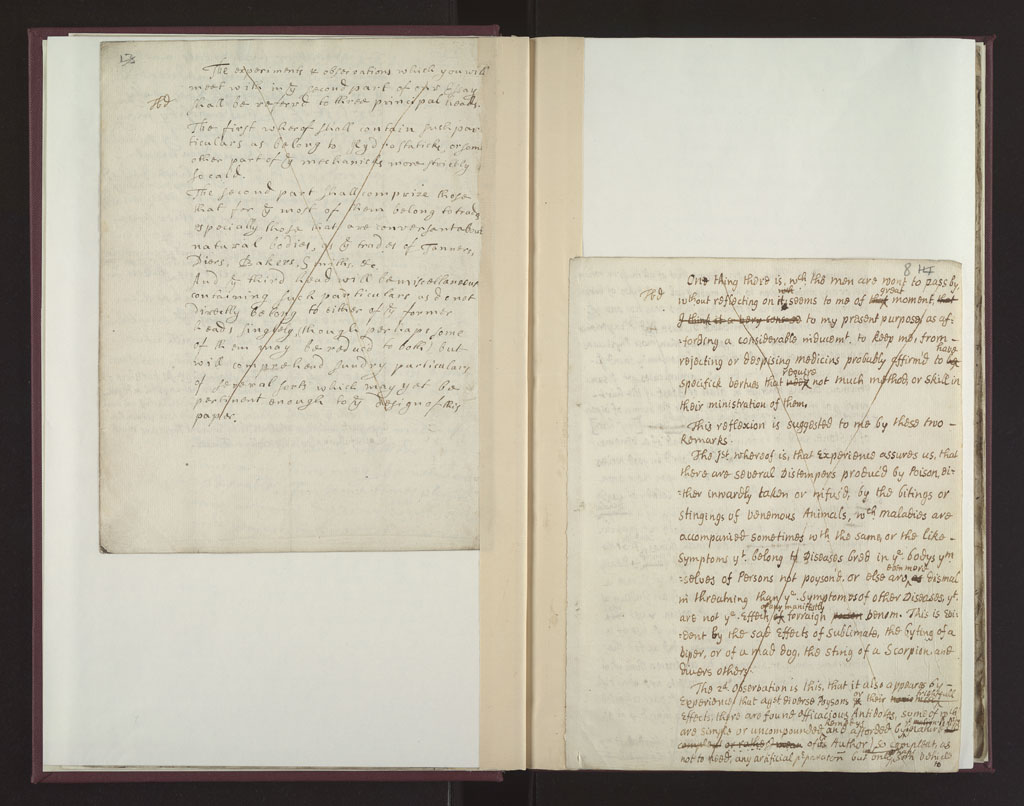 The experiments & observations which you will
meet with in ye second part of this Essay
shall be referd to three principal heads.
The first wherof shall contain such par
ticulars as belong to Hydrostaticks, or som
other part of ye mechanicks more strictly
so cald.
The second part shall comprize those
that for ye most of them belong to trades
especially those that are conversant about
natural bodies, as ye trades of Tanners,
Diers, Bakers, Smiths, &c.
And ye third head will be miscellaneous
containing such particulars as do not
directly belong to either of ye former
heads singly, though perhaps some
of them may be reduced to both; but
will comprehend sundry particulars
of several sorts which may yet be
pertinent enough to ye design of this
paper.
8
One thing there is, wch the men are wont to pass by
without reflecting on it, wch seems to me of great moment, that
I think it a very to my present purpose, as af-
-fording a considerable inducemt. to keep me, from -
rejecting or despising medicins probably affirm'd to have
specifick vertues that require not much method, or skill in
their ministration of them.
This reflexion is suggested to me by these two -
Remarks.
The 1st whereof is, that Experience assures us, that
there are several Distempers produc'd by Poison, ei-
-ther inwardly taken or infus'd, by the bitings or
stingings of venemous Animals, wch maladies are
accompanied sometimes wth the same, or the like -
symptoms yt belong to Diseases bred in ye bodys ym
-selves of Persons not poyson'd, or else are even more dismal
in threatning than ye Symptomes of other Diseases, yt
are not ye Effects of any manifestly forraign poison venom. This is evi-
-dent by the sad Effects of Sublimate, the byting of a
viper, or of a mad dog, the sting of a Scorpion, and
divers others.
The 2d Observation is this, that it also appears by -
Experience, that agst diverse Poysons or their
Effects, there are found efficacious Antidotes, some of wch
are simple or uncompounded, and afforded by nature
of its Author) so compleat, as
not to need, any artificial preparaton but only